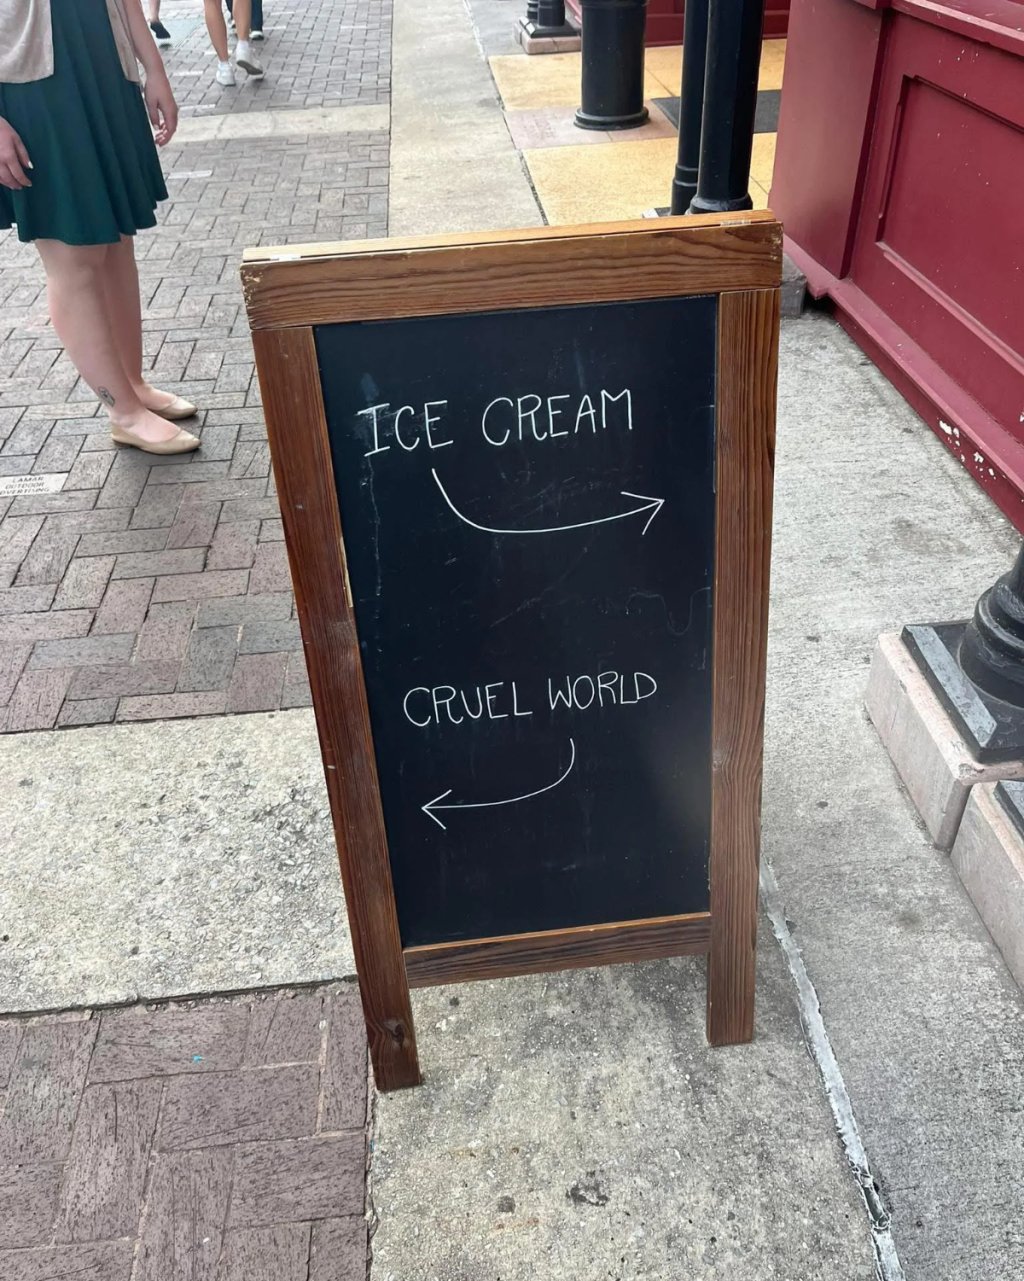 ICE CREAM
CRUEL WORLD
LAMAR
OUTDOOR
ADVERTISING